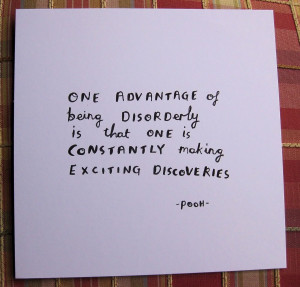 ONE ADVANTAGE of
being DISORDERLY
is that ONE is
CONSTANTLY making
EXCITING DISCOVERIES
-POOH-